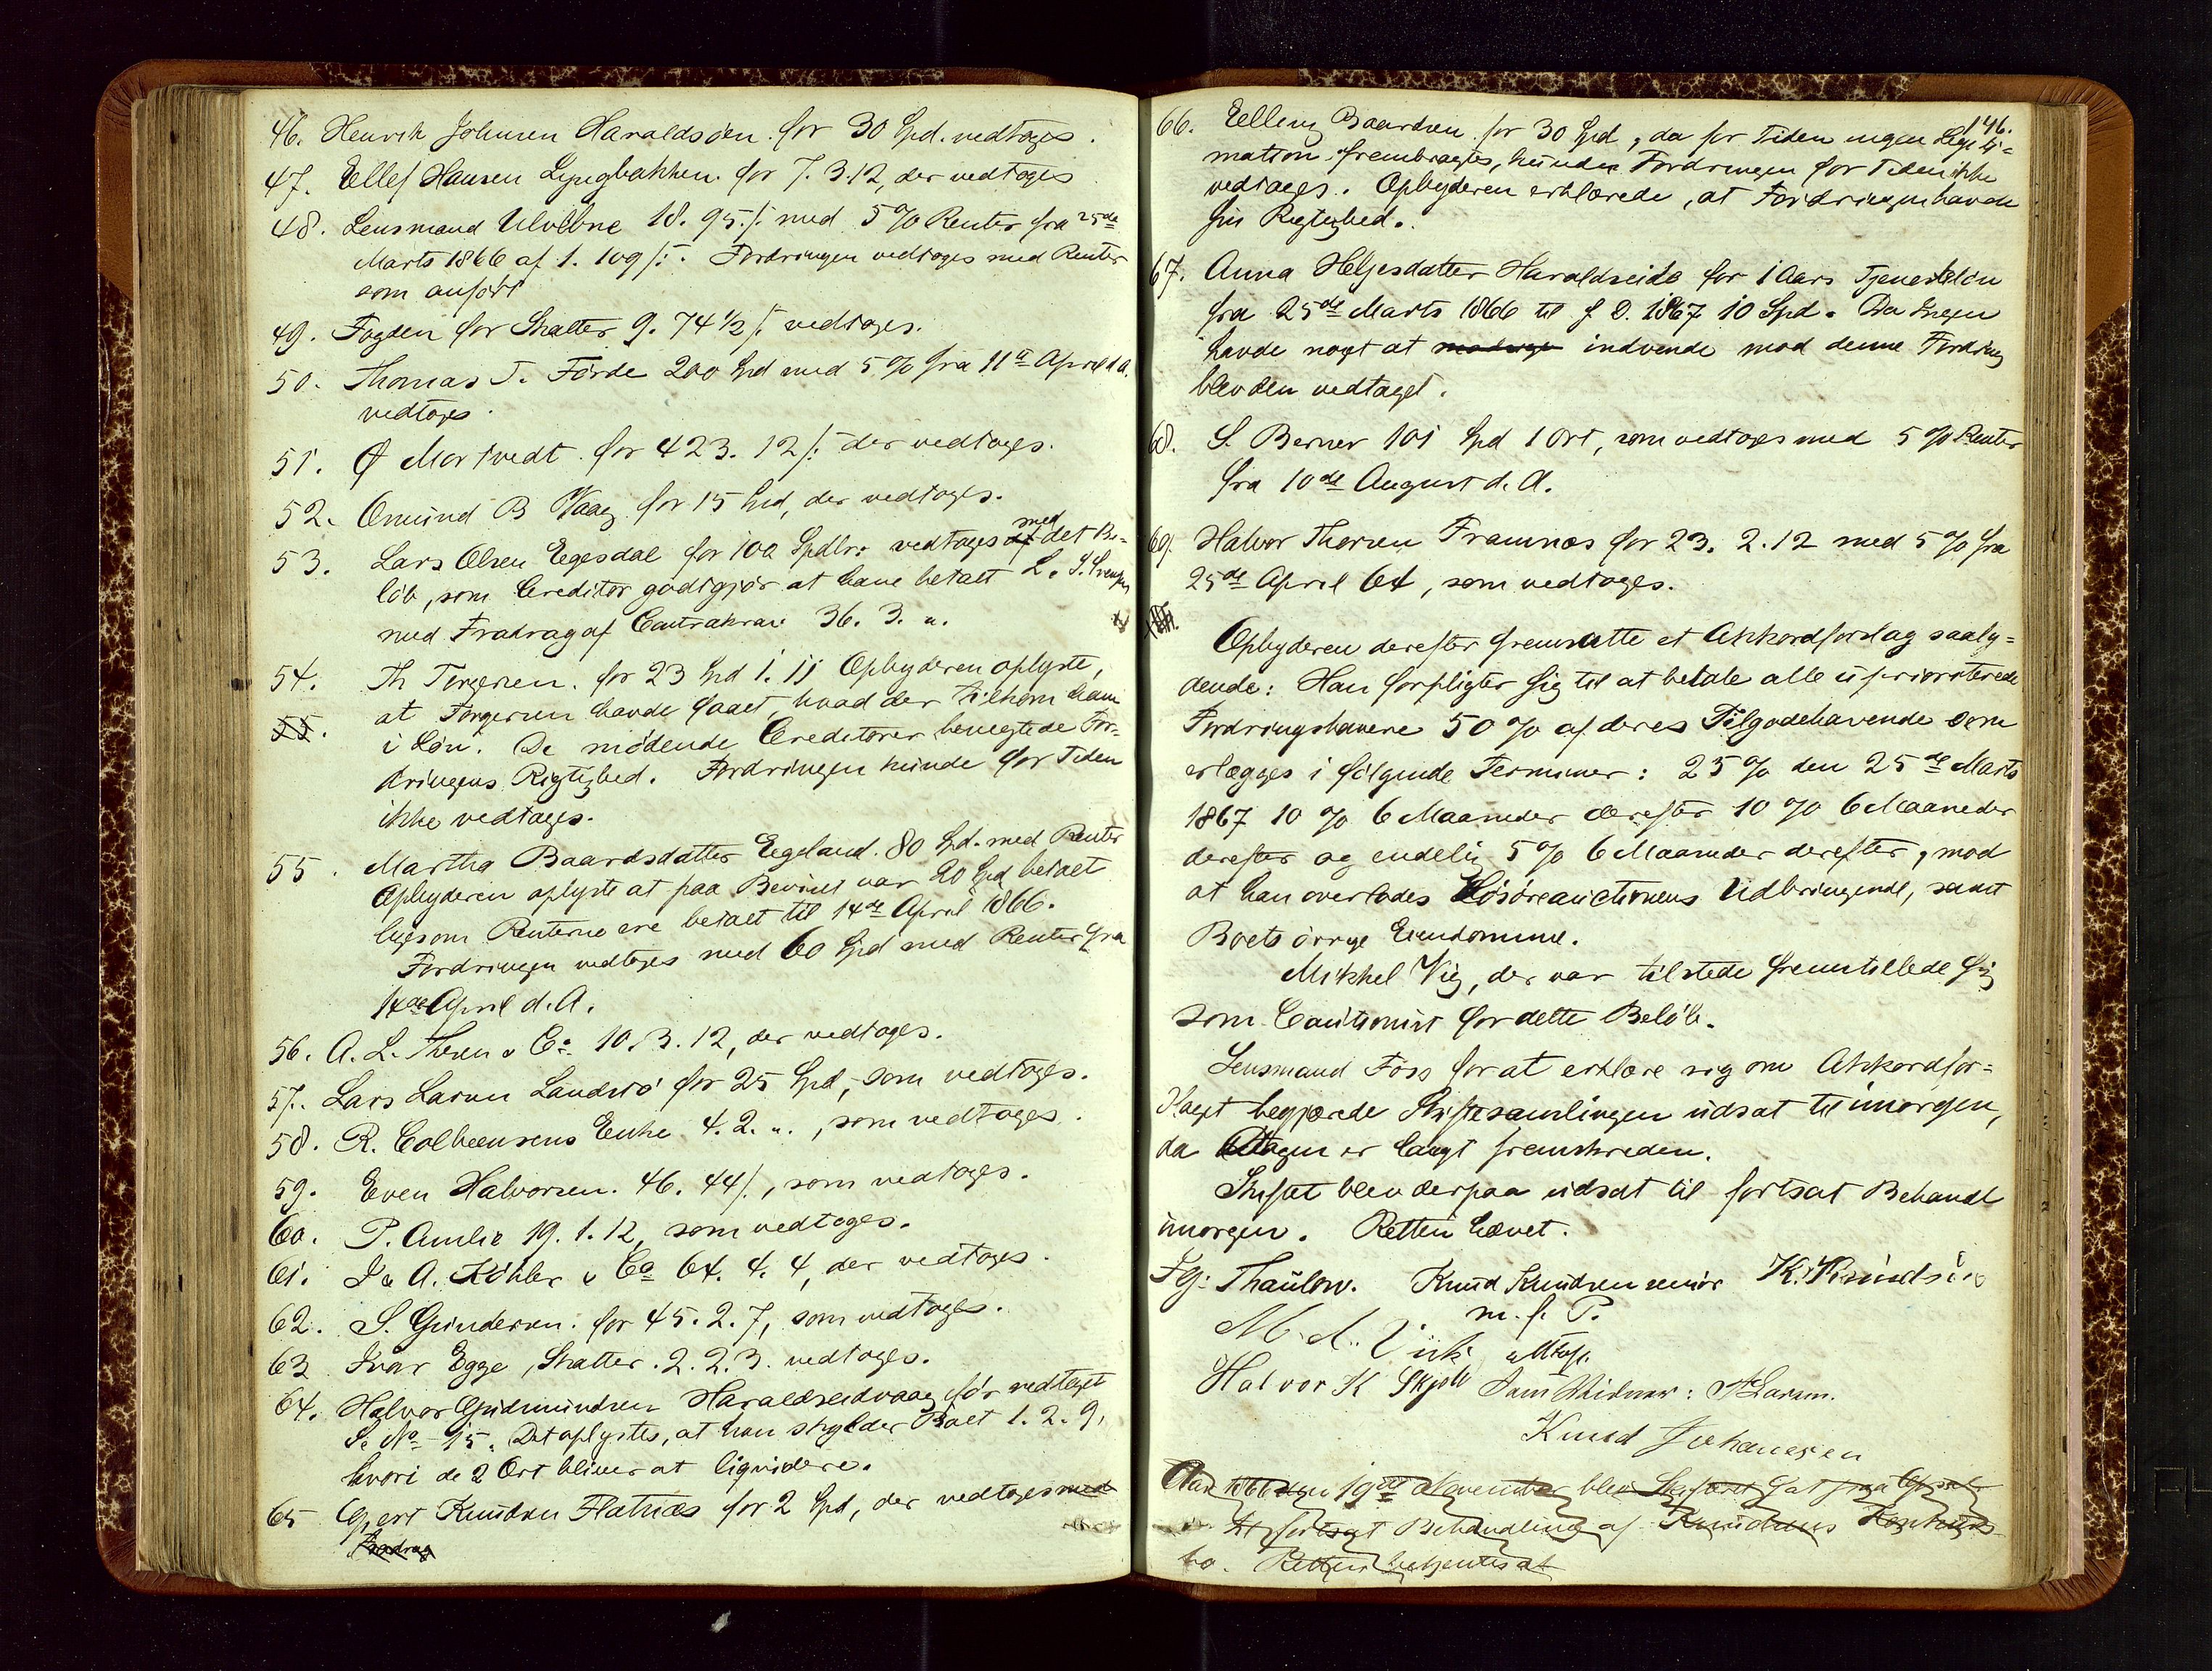 46. Henrik Johnsen Haraldsøen for 30 Spd. vedtoges.
47. Ellef Hansen Lyngbakken for 7. 3. 12, der vedtoges
48. Lensmand Ulvebne 18. 95 /: med 5 % Renter fra 25de
Marts 1866 af 1. 109 /:. Fordringen vedtoges med Renter
som anført
49. Fogden for Skatter 9. 74 1/2 /: vedtoges.
50. Thomas T. Førde 200 Spd med 5 % fra 11te April d. A.
vedtoges.
51. Ø Mortvedt for 423. 12 /: der vedtoges.
52. Omund B Vaag for 15 Spd, der vedtoges.
53. Lars Olsen Egesdal for 100 Spdlr: vedtages af med det Be-
løb, som Creditor godtgjør at have betalt L. S.
med Fradrag af Contrakrav 36. 3. ".
54. Th Torgersen for 23 Spd 1. 11 Opbyderen oplyste,
at Torgersen havde faaet, hvad der tilkom ham
55. i Løn. De mødende Creditorer benegtede For-
dringens Rigtighed. Fordringen kunde for Tiden
ikke vedtages.
55. Martha Baardsdatter Egeland. 80 Spd. med Renter
Opbyderen oplyste at paa Beviset var 20 Spd betalt
ligesom Renterne ere betalt til 14de April 1866.
Fordringen vedtoges med 60 Spd med Renter fra
14de April d. A.
56. A. L. Thsen & Co. 10. 3. 12, der vedtoges.
57. Lars Larsen Landsiø for 25 Spd, som vedtoges.
58. R. Colbeensens Enke 4. 2. ". , som vedtoges.
59. Even Halvorsen. 46. 44 /:, som vedtoges.
60. P. Amlie 19. 1. 12, som vedtoges.
61. J & A. Köhler & Co 64. 4. 4, der vedtoges.
62. S. Gundersen for 45. 2. 7, som vedtoges.
63 Ivar Egge, Skatter. 2. 2. 3. vedtoges.
64. Halvor Gudmundsen Haraldseidvaag før vedtaget
S. No 15. Det oplystes, at han skylder Boet 1. 2. 9,
hvori de 2 Ort bliver at liqvidere.
65 Gjert Knudsen Flatnæs for 2 Spd, der vedtoges med
Fradrag
146.
66. Elling Baardsen for 30 Spd, da for Tiden ingen Legiti-
mation frembragtes, kunde Fordringen for Tiden ikke
vedtages. Opbyderen erklærede, at Fordringen havde
sin Rigtighed.
67. Anna Helgesdatter Haraldseide for 1 Aars Tjenesteløn
fra 25de Marts 1866 til s. D. 1867 10 Spd. Da Ingen
havde noget at indvende mod denne Fordring
blev den vedtaget.
68. S. Berner 101 Spd 1 Ort, som vedtoges med 5 % Renter
fra 10de August d. A.
69. Halvor Thorsen Framnæs for 23. 2. 12 med 5 % fra
25de April 64, som vedtoges.
Opbyderen derefter fremsatte et Akkordforslag saaly-
dende: Han forpligter sig til at betale alle upriorterede
Fordringshavere 50 % af deres Tilgodehavende som
erlægges i følgende Terminer: 25 % den 25de Marts
1867 10 % 6 Maaneder derefter 10 % 6 Maaneder
derefter og endelig 5 % 6 Maaneder derefter, mod
at han overlades Løsøreauctionens Udbringende, samt
Boets øvrige Eiendomme.
Mikkel Vig, der var tilstede fremstillede sig
som Cautionist for dette Beløb.
Lensmand Foss for at erklære sig om Akkordfor-
slaget begjærede Skiftesamlingen udsat til imorgen,
da Dagen er langt fremskreden.
Skiftet blev derpaa udsat til fortsat Behandl
imorgen. Retten hævet.
Fg: Thaulow. Knud Knudsen senior K. Knudsen
m. f. P.
M. d. Viik
Halvor K Skjold Som Vidner: N Larsen.
Knud Johannesen
Aar 1866 den 19de November blev Skifteret sat paa
til fortsat Behandling af Knudsens Konkurs-
bo. Retten betjentes at